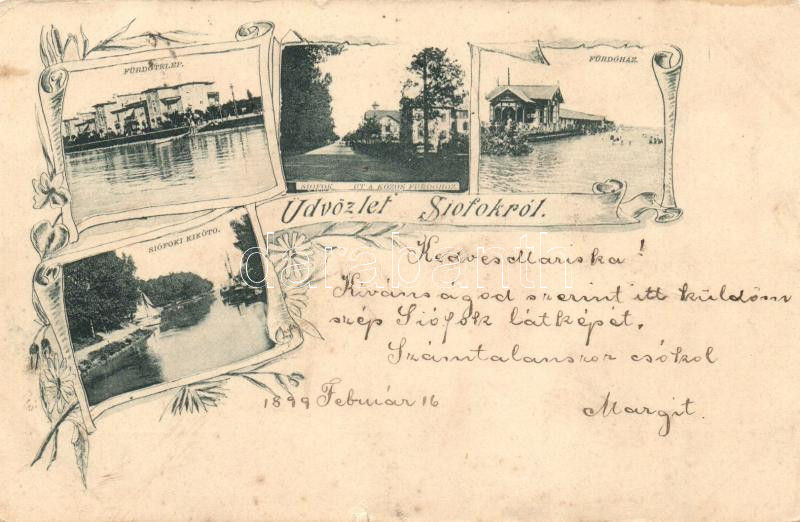 FÜRDŐTELEP.
SIÓFOK. ÚT A KÖZÖS FÜRDŐHÖZ.
FÜRDŐHÁZ.
Üdvözlet Siófokról.
SIÓFOKI KIKÖTŐ.
darabanth
Kedves Mariska!
Kivánságod szerint itt küldöm
szép Siófok látképét.
Számtalanszor csókol
1899 Február 16
Margit.